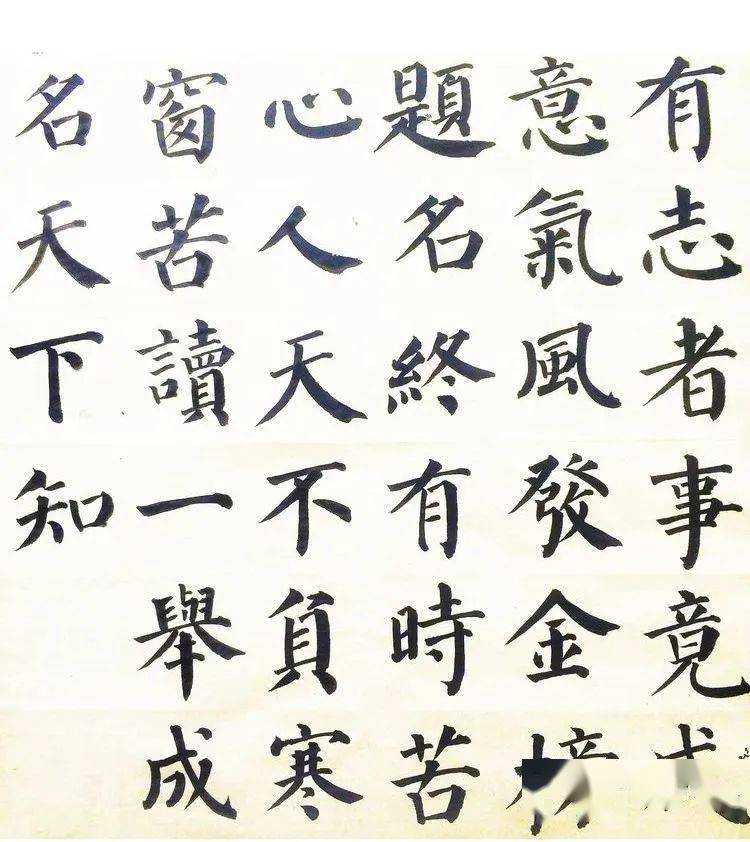 有志者事竟成
意氣風發金榜
題名終有時苦
心人天不負寒
窗苦讀一舉成
名天下知